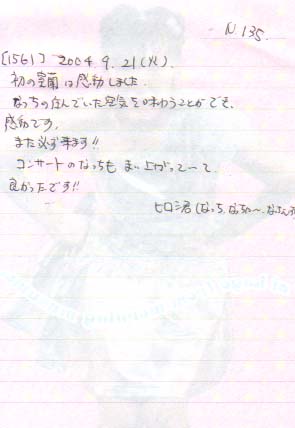 N 135.
[1561] 2004. 9. 21 (火).
初の室蘭は感動しました.
なっちの住んでいた空気を味わうことができ、
感動です。
また必ず来ます!!
コンサートのなっちも まい上がって〜て
良かったです!!
ヒロシ君 (なっち、なっち〜、なっさん